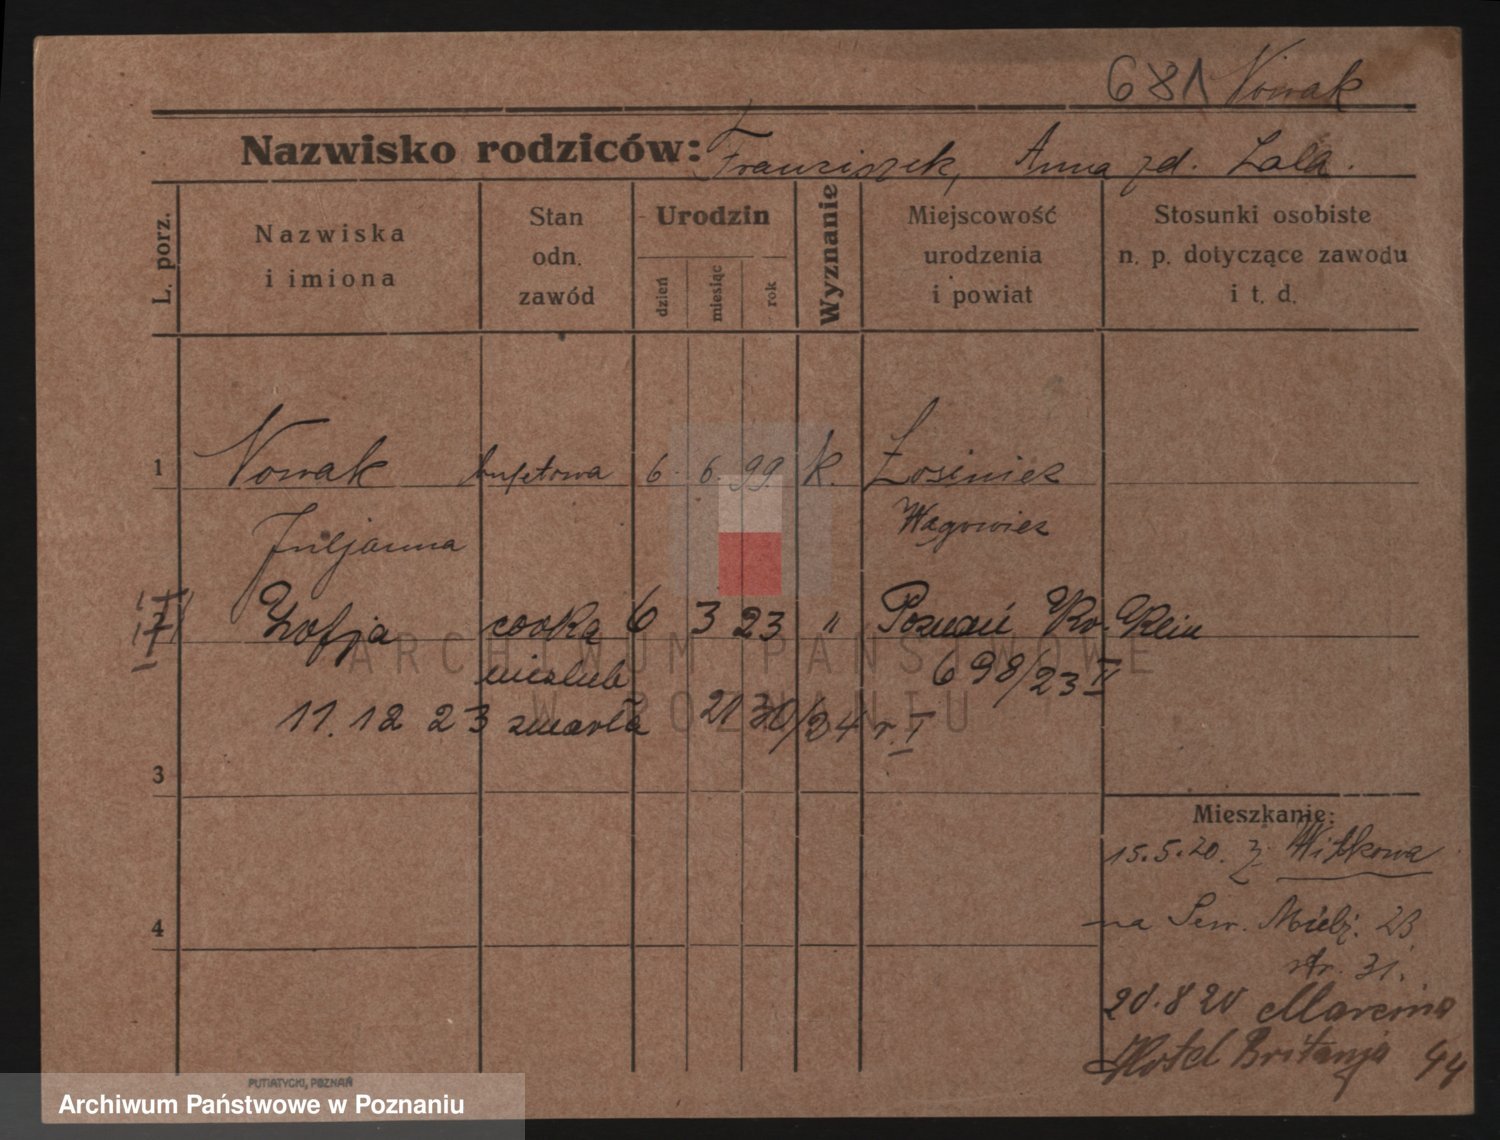 681 Nowak
Nazwisko rodziców: Franciszek, Anna zd. Lala.
L. porz.
Nazwiska
i imiona
Stan
odn.
zawód
Urodzin
dzień
miesiąc
rok
Wyznanie
Miejscowość
urodzenia
i powiat
Stosunki osobiste
n. p. dotyczące zawodu
i t. d.
1 Nowak bufetowa 6. 6. 99. k.
Juljanna
Zofja córka 6 3 23 " Poznań
nieślub 698/23 II
11. 12 23 zmarła 24 r. I
3
4
Mieszkanie:
15.5.20. z Witkowa
na Sew. Mielż. 23
31.
20.8 20 Marcina
Hotel Britanja 44
PUTIATYCKI, POZNAŃ
ARCHIWUM PAŃSTWOWE
W POZNANIU
Archiwum Państwowe w Poznaniu